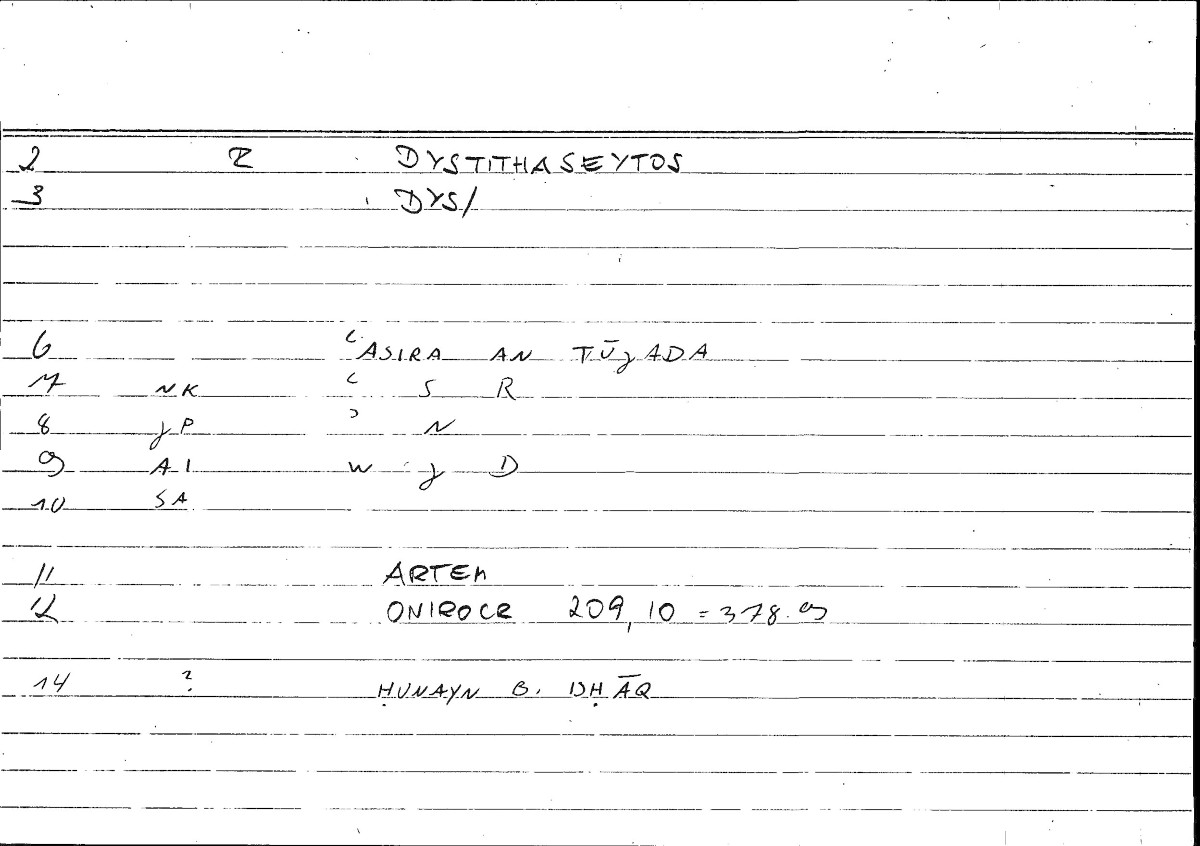 2 Z DYSTITHASEYTOS
3 DYS/
6 ʿASIRA AN TŪJADA
7 NK ʿ S R
8 JP ʾ N
9 AI W J D
10 SA
11 ARTEM
12 ONIROCR 209,10 = 378.9
14 ? ḤUNAYN B. ISḤĀQ